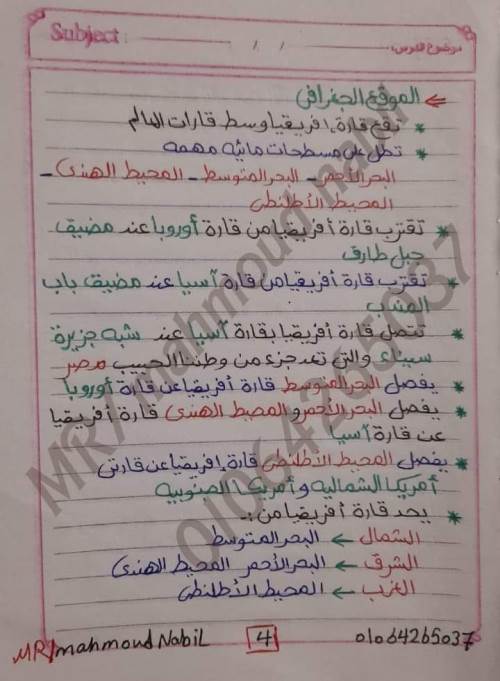 Subject :
/ /
موضوع الدرس:
← الموقع الجغرافى
* تقع قارة إفريقيا وسط قارات العالم
* تطل على مسطحات مائيه مهمه
البحر الأحمر - البحر المتوسط - المحيط الهندى -
المحيط الأطلنطى
* تقترب قارة أفريقيا من قارة أوروبا عند مضيق
جبل طارق
* تقترب قارة أفريقيا من قارة آسيا عند مضيق باب
المندب
* تتصل قارة أفريقيا بقارة آسيا عند شبه جزيرة
سيناء والتى تعد جزء من وطننا الحبيب مصر
* يفصل البحر المتوسط قارة أفريقيا عن قارة أوروبا
* يفصل البحر الأحمر و المحيط الهندى قارة أفريقيا
عن قارة آسيا
* يفصل المحيط الأطلنطى قارة إفريقيا عن قارتى
أمريكا الشماليه وأمريكا الجنوبيه
* يحد قارة أفريقيا من :-
الشمال ← البحر المتوسط
الشرق ← البحر الأحمر المحيط الهندى
الغرب ← المحيط الأطلنطى
MR/mahmoud Nabil 4 01064265037
MR/mahmoud nabil
01064265037